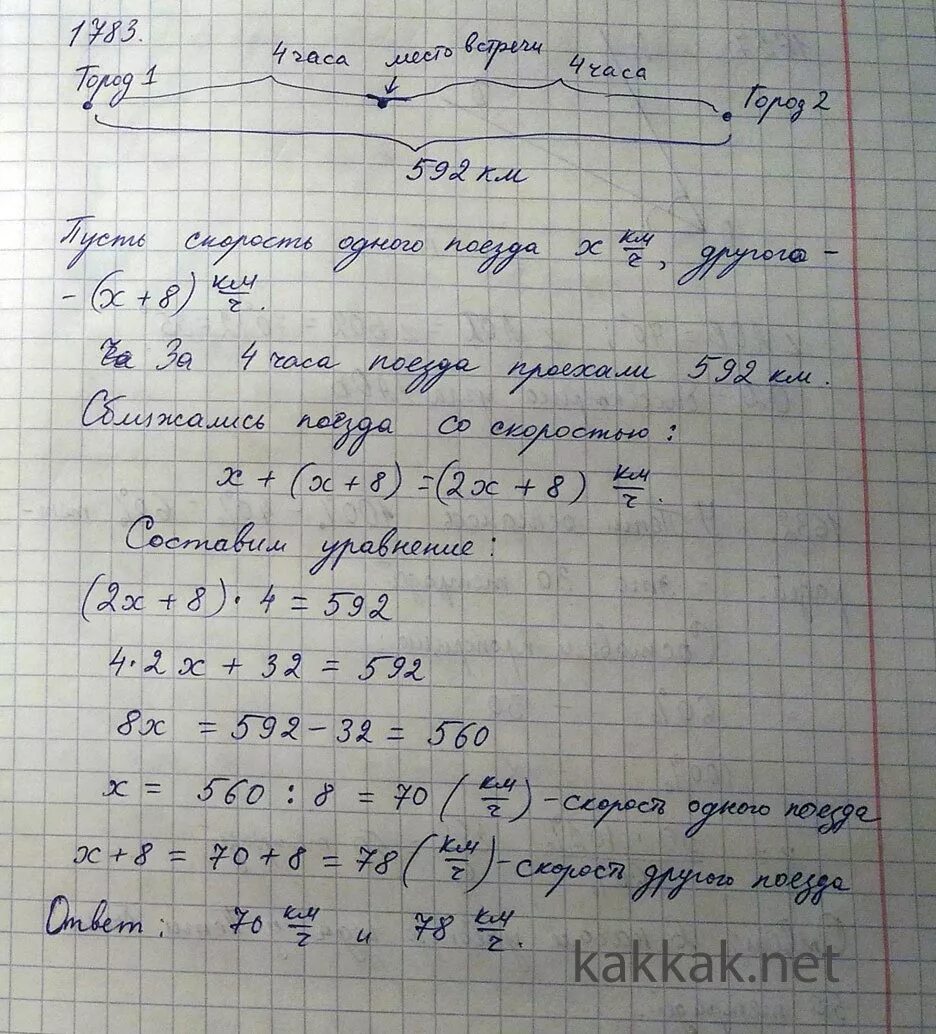 1783.
4 часа место встречи 4 часа
Город 1
Город 2
592 км
Пусть скорость одного поезда x км/ч, другого -
- (x + 8) км/ч.
За 4 часа поезда проехали 592 км.
Сближались поезда со скоростью:
x + (x + 8) = (2x + 8) км/ч.
Составим уравнение:
(2x + 8) · 4 = 592
4 · 2x + 32 = 592
8x = 592 - 32 = 560
x = 560 : 8 = 70 (км/ч) - скорость одного поезда
x + 8 = 70 + 8 = 78 (км/ч) - скорость другого поезда
Ответ: 70 км/ч и 78 км/ч.
kakkak.net